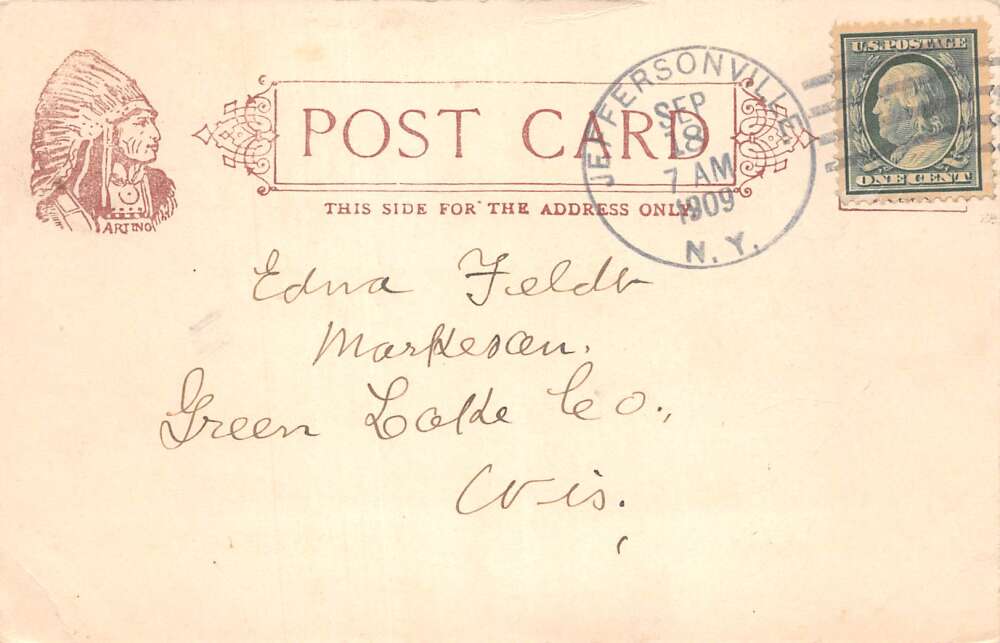 POST CARD
THIS SIDE FOR THE ADDRESS ONLY
ARTINO
JEFFERSONVILLE.
SEP
18
7 AM
1909
N. Y.
U.S. POSTAGE
ONE CENT
Edna Feldt
Markesan.
Green Lake Co.,
Wis.